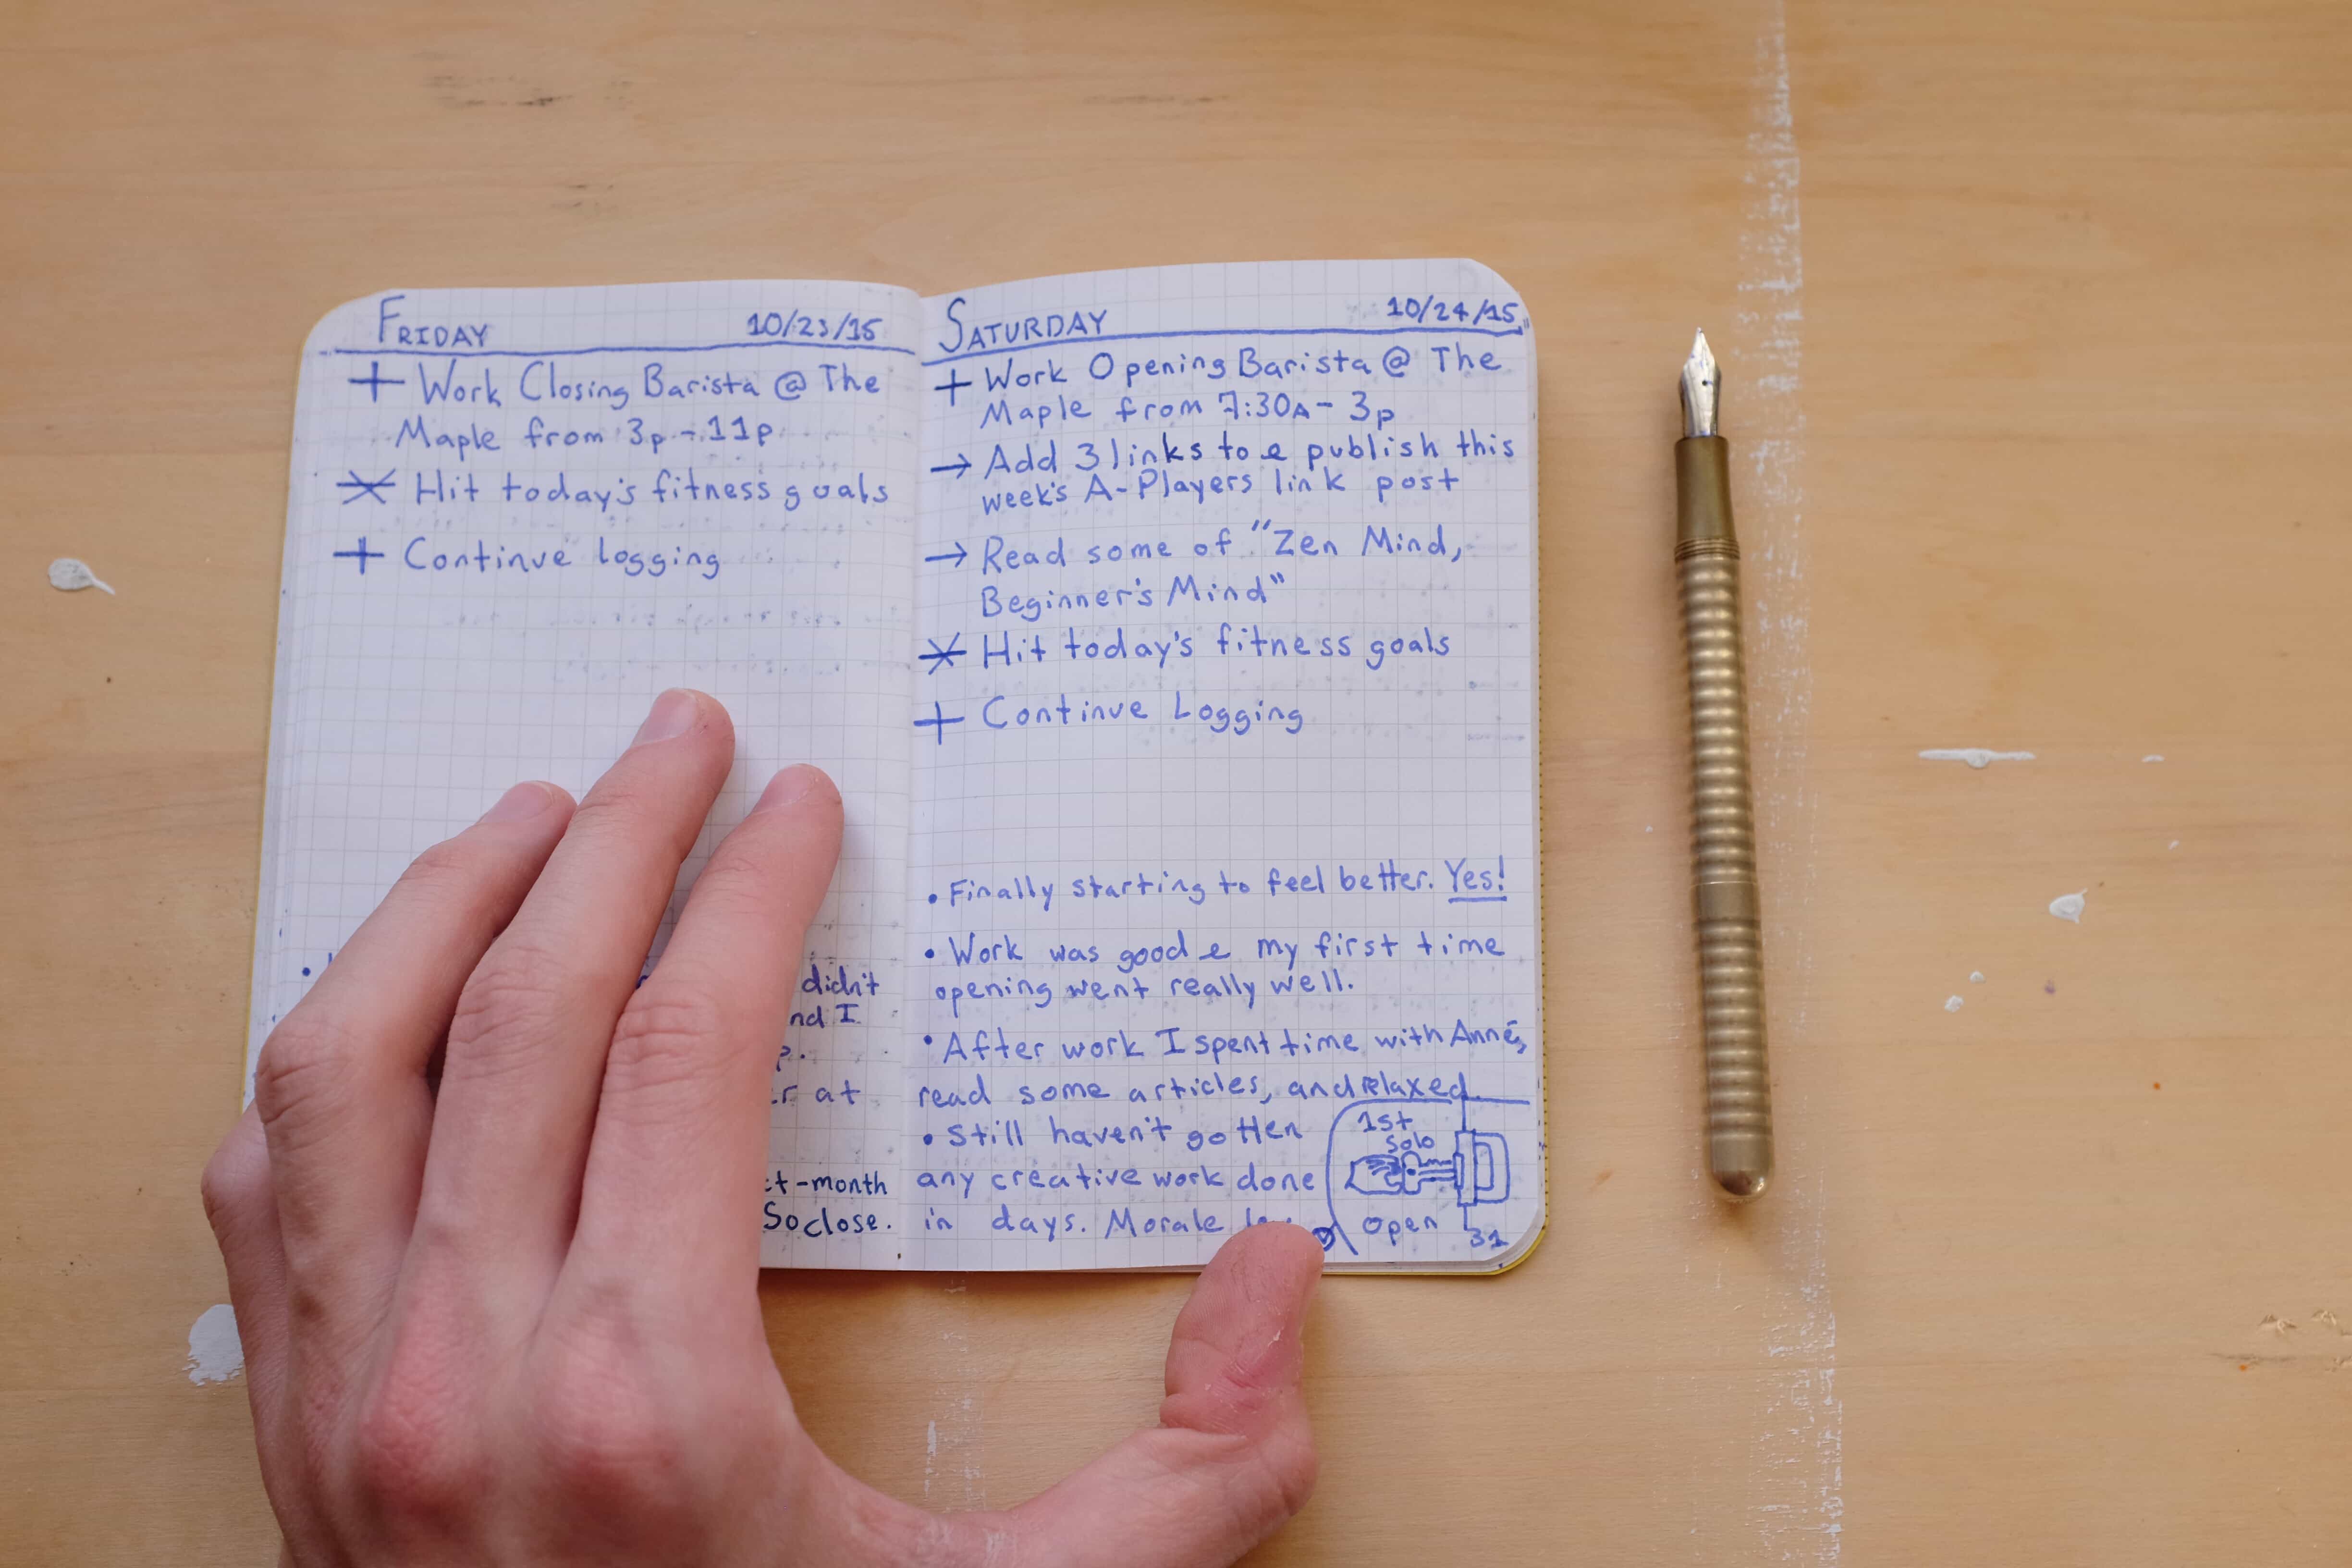 FRIDAY 10/23/15
+ Work Closing Barista @ The
Maple from 3p - 11p
Hit today's fitness goals
+ Continue logging
didn't
nd I
p.
r at
t-month
So close.
SATURDAY 10/24/15
+ Work Opening Barista @ The
Maple from 7:30A - 3p
→ Add 3 links to & publish this
week's A-Players link post
→ Read some of "Zen Mind,
Beginner's Mind"
Hit today's fitness goals
+ Continue Logging
• Finally starting to feel better. Yes!
• Work was good & my first time
opening went really well.
• After work I spent time with Anné,
read some articles, and relaxed.
• Still haven't gotten
any creative work done
in days. Morale
1st
Solo
open
31